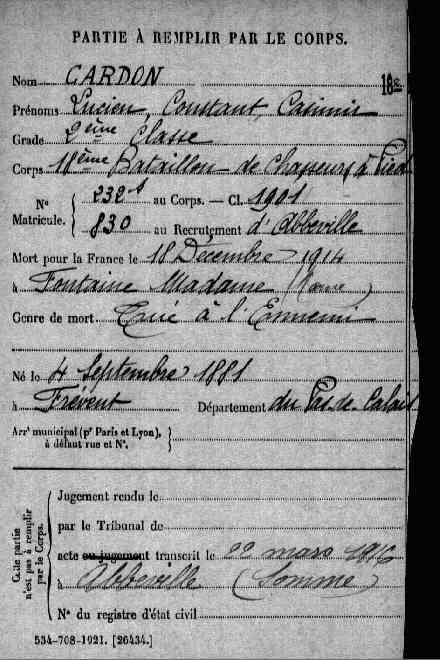 PARTIE À REMPLIR PAR LE CORPS.
Nom CARDON
Prénoms Lucien, Constant, Casimir
Grade 2ème Classe
Corps 18ème Bataillon de Chasseurs à Pied
No Matricule. 2321 au Corps. — Cl. 1901
830 au Recrutement d'Abbeville
Mort pour la France le 18 Décembre 1914
à Fontaine Madame
Genre de mort Tué à l'Ennemi
Né le 4 Septembre 1881
à Frévent Département du Pas-de-Calais
Arrt municipal (pr Paris et Lyon),
à défaut rue et No.
Cette partie
n'est pas à remplir
par le Corps.
Jugement rendu le
par le Tribunal de
acte ou jugement transcrit le 22 mars 1916
à Abbeville (Somme)
No du registre d'état civil
534-708-1921. [26434.]